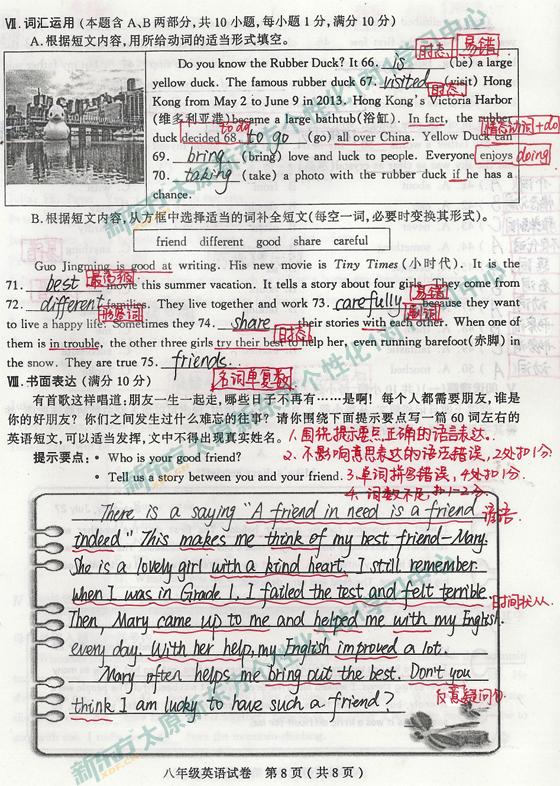 Ⅶ. 词汇运用 (本题含 A、B 两部分,共 10 小题,每小题 1 分,满分 10 分)
A. 根据短文内容,用所给动词的适当形式填空。
时态 易错
Do you know the Rubber Duck? It 66. is (be) a large
yellow duck. The famous rubber duck 67. visited (visit) Hong
Kong from May 2 to June 9 in 2013. Hong Kong's Victoria Harbor
(维多利亚港) became a large bathtub(浴缸). In fact, the rubber
to do 情态动词+do
duck decided 68. to go (go) all over China. Yellow Duck can
69. bring (bring) love and luck to people. Everyone enjoys doing
70. taking (take) a photo with the rubber duck if he has a
chance.
B. 根据短文内容,从方框中选择适当的词补全短文(每空一词,必要时变换其形式)。
friend different good share careful
Guo Jingming is good at writing. His new movie is Tiny Times (小时代). It is the
71. best 最高级 movie this summer vacation. It tells a story about four girls. They come from
72. different families. They live together and work 73. carefully, because they want
形容词 易错 副词
to live a happy life. Sometimes they 74. share their stories with each other. When one of
them is in trouble, the other three girls try their best to help her, even running barefoot(赤脚) in
时态
the snow. They are true 75. friends.
名词单复数
Ⅷ. 书面表达 (满分 10 分)
有首歌这样唱道:朋友一生一起走,哪些日子不再有……是啊! 每个人都需要朋友,谁是
你的好朋友? 你们之间发生过什么难忘的往事? 请你围绕下面提示要点写一篇 60 词左右的
英语短文,可以适当发挥,文中不得出现真实姓名。
1. 围绕提示要点,正确的语言表达。
提示要点: • Who is your good friend?
2. 不影响意思表达的语法错误, 2处扣1分.
• Tell us a story between you and your friend.
3. 单词拼写错误, 4处扣1分.
4. 词数不足扣1-2分.
There is a saying "A friend in need is a friend
谚语
indeed." This makes me think of my best friend—Mary.
She is a lovely girl with a kind heart. I still remember
when I was in Grade 1, I failed the test and felt terrible.
时间状从
Then, Mary came up to me and helped me with my English
every day. With her help, my English improved a lot.
Mary often helps me bring out the best. Don't you
反意疑问句
think I am lucky to have such a friend?
新东方太原新东方个性化1对1学习中心
新东方
XDF.CN
八年级英语试卷 第 8 页 (共 8 页)